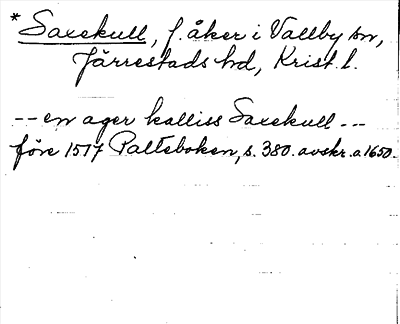 * Saxekull, f. åker i Vallby sn,
Järrestads hd, Krist. l.
-- en ager kalliss Saxekull --
före 1517 Palteboken, s. 380. avskr. a 1650.